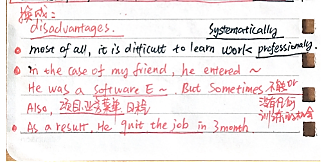 换成:
disadvantages.
systematically
most of all, it is difficult to learn work professionaly.
in the case of my friend, he entered ~
He was a software E ~ But sometimes 不能
Also, 项目业务菜单 日程
As a result, He quit the job in 3month